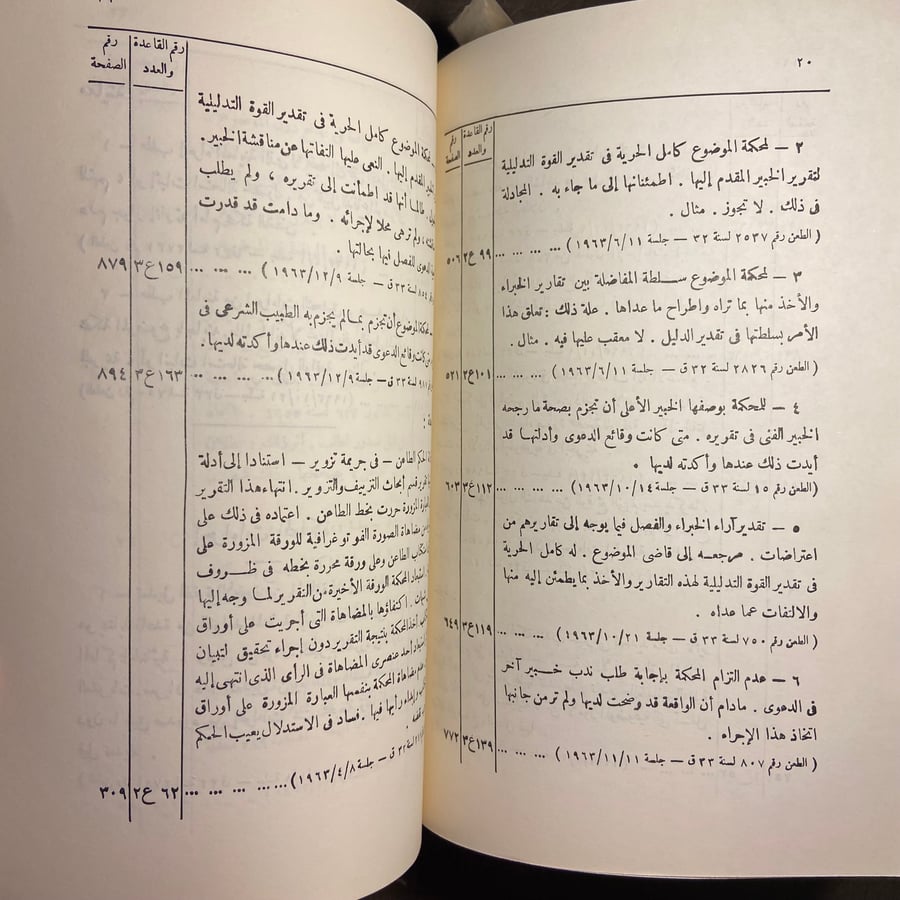 ٢٠
رقم القاعدة والعدد
رقم الصفحة
٢ — لمحكمة الموضوع كامل الحرية فى تقدير القوة التدليلية
لتقرير الخبير المقدم إليها . اطمئنانها إلى ما جاء به . المجادلة
فى ذلك . لا تجوز . مثال .
( الطعن رقم ٢٥٣٧ لسنة ٣٢ — جلسة ١٩٦٣/٦/١١ ) ... ... ... ... ٩٩ ع٢ ٥٠٦
٣ — لمحكمة الموضوع سلطة المفاضلة بين تقارير الخبراء
والأخذ منها بما تراه واطراح ما عداها . علة ذلك : تعلق هذا
الأمر بسلطتها فى تقدير الدليل . لا معقب عليها فيه . مثال .
( الطعن رقم ٢٨٢٦ لسنة ٣٢ ق — جلسة ١٩٦٣/٦/١١ ) ... ... ... ١٠١ع٢ ٥٢١
٤ — للمحكمة بوصفها الخبير الأعلى أن تجزم بصحة ما رجحه
الخبير الفنى فى تقريره . متى كانت وقائع الدعوى وأدلتها قد
أيدت ذلك عندها وأكدته لديها .
(الطعن رقم ١٥ لسنة ٣٣ ق — جلسة ١٩٦٣/١٠/١٤ ) ... ... ... ... ١١٢ع٣ ٦٠٣
٥ — تقدير آراء الخبراء والفصل فيما يوجه إلى تقاريرهم من
اعتراضات . مرجعه إلى قاضى الموضوع . له كامل الحرية
فى تقدير القوة التدليلية لهذه التقارير والأخذ بما يطمئن إليه منها
والالتفات عما عداه .
( الطعن رقم ٧٥٠ لسنة ٣٣ ق — جلسة ١٩٦٣/١٠/٢١ ) ... ... ... ١١٩ع٣ ٦٤٩
٦ — عدم التزام المحكمة بإجابة طلب ندب خبير آخر
فى الدعوى . مادام أن الواقعة قد وضحت لديها ولم تر من جانبها
اتخاذ هذا الإجراء .
( الطعن رقم ٨٠٧ لسنة ٣٣ ق — جلسة ١٩٦٣/١١/١١ ) ... ... ... ١٣٩ع٣ ٧٧٢
رقم القاعدة والعدد
رقم الصفحة
الموضوع كامل الحرية فى تقدير القوة التدليلية
المقدم إليها . النعى عليها التفاتها عن مناقشة الخبير .
طالما أنها قد اطمأنت إلى تقريره ، ولم يطلب
ولم تر هى محلا لإجرائه . وما دامت قد قدرت
الدعوى للفصل فيها بحالتها .
لسنة ٣٣ ق — جلسة ١٩٦٣/١٢/٩ ) ... ... ... ١٥٩ع٣ ٨٧٩
الموضوع أن تجزم بما لم يجزم به الطبيب الشرعى فى
كانت وقائع الدعوى قد أيدت ذلك عندها وأكدته لديها .
لسنة ٣٣ ق — جلسة ١٩٦٣/١٢/٩ ) ... ... ... ... ١٦٣ع٣ ٨٩٤
الطاعن — فى جريمة تزوير — استنادا إلى أدلة
قسم أبحاث التزييف والتزوير . انتهاء هذا التقرير
المزورة حررت بخط الطاعن . اعتماده فى ذلك على
مضاهاة الصورة الفوتوغرافية للورقة المزورة على
الطاعن وعلى ورقة محررة بخطه فى ظروف
استبعاد المحكمة الورقة الأخيرة من التقرير لما وجه إليها
اكتفاؤها بالمضاهاة التى أجريت على أوراق
أخذ المحكمة بنتيجة التقرير دون إجراء تحقيق لتبيان
أحد عنصرى المضاهاة فى الرأى الذى انتهى إليه
مضاهاة المحكمة بنفسها العبارة المزورة على أوراق
وإبداء رأيها فيها . فساد فى الاستدلال يعيب الحكم
لسنة ٣٢ ق — جلسة ١٩٦٣/٤/٨ ) ... ... ... ... ... ٦٢ ع٢ ٣٠٩